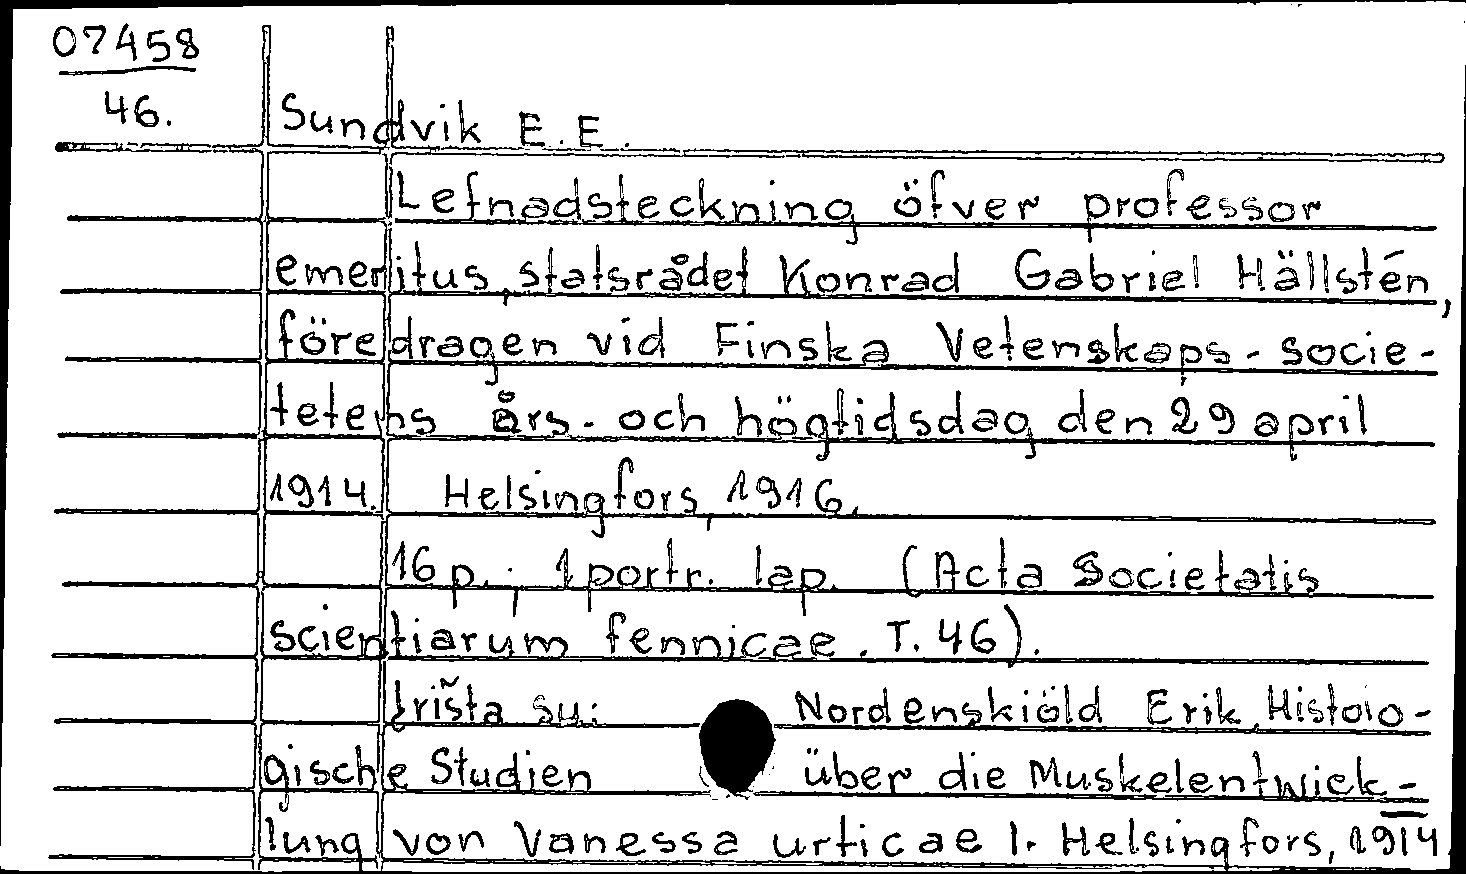 07458
46.
Sundvik E.E.
Lefnadsteckning öfver professor
emeritus, statsrådet Konrad Gabriel Hällstén,
föredragen vid Finska Vetenskaps-socie-
tetens års- och högtidsdag den 29 april
1914. Helsingfors, 1916.
16 p.; 1 portr. lap. (Acta Societatis
scientiarum fennicae. T. 46).
Įrišta su: Nordenskiöld Erik, Histolo-
gische Studien über die Muskelentwick-
lung von Vanessa urticae l. Helsingfors, 1914.